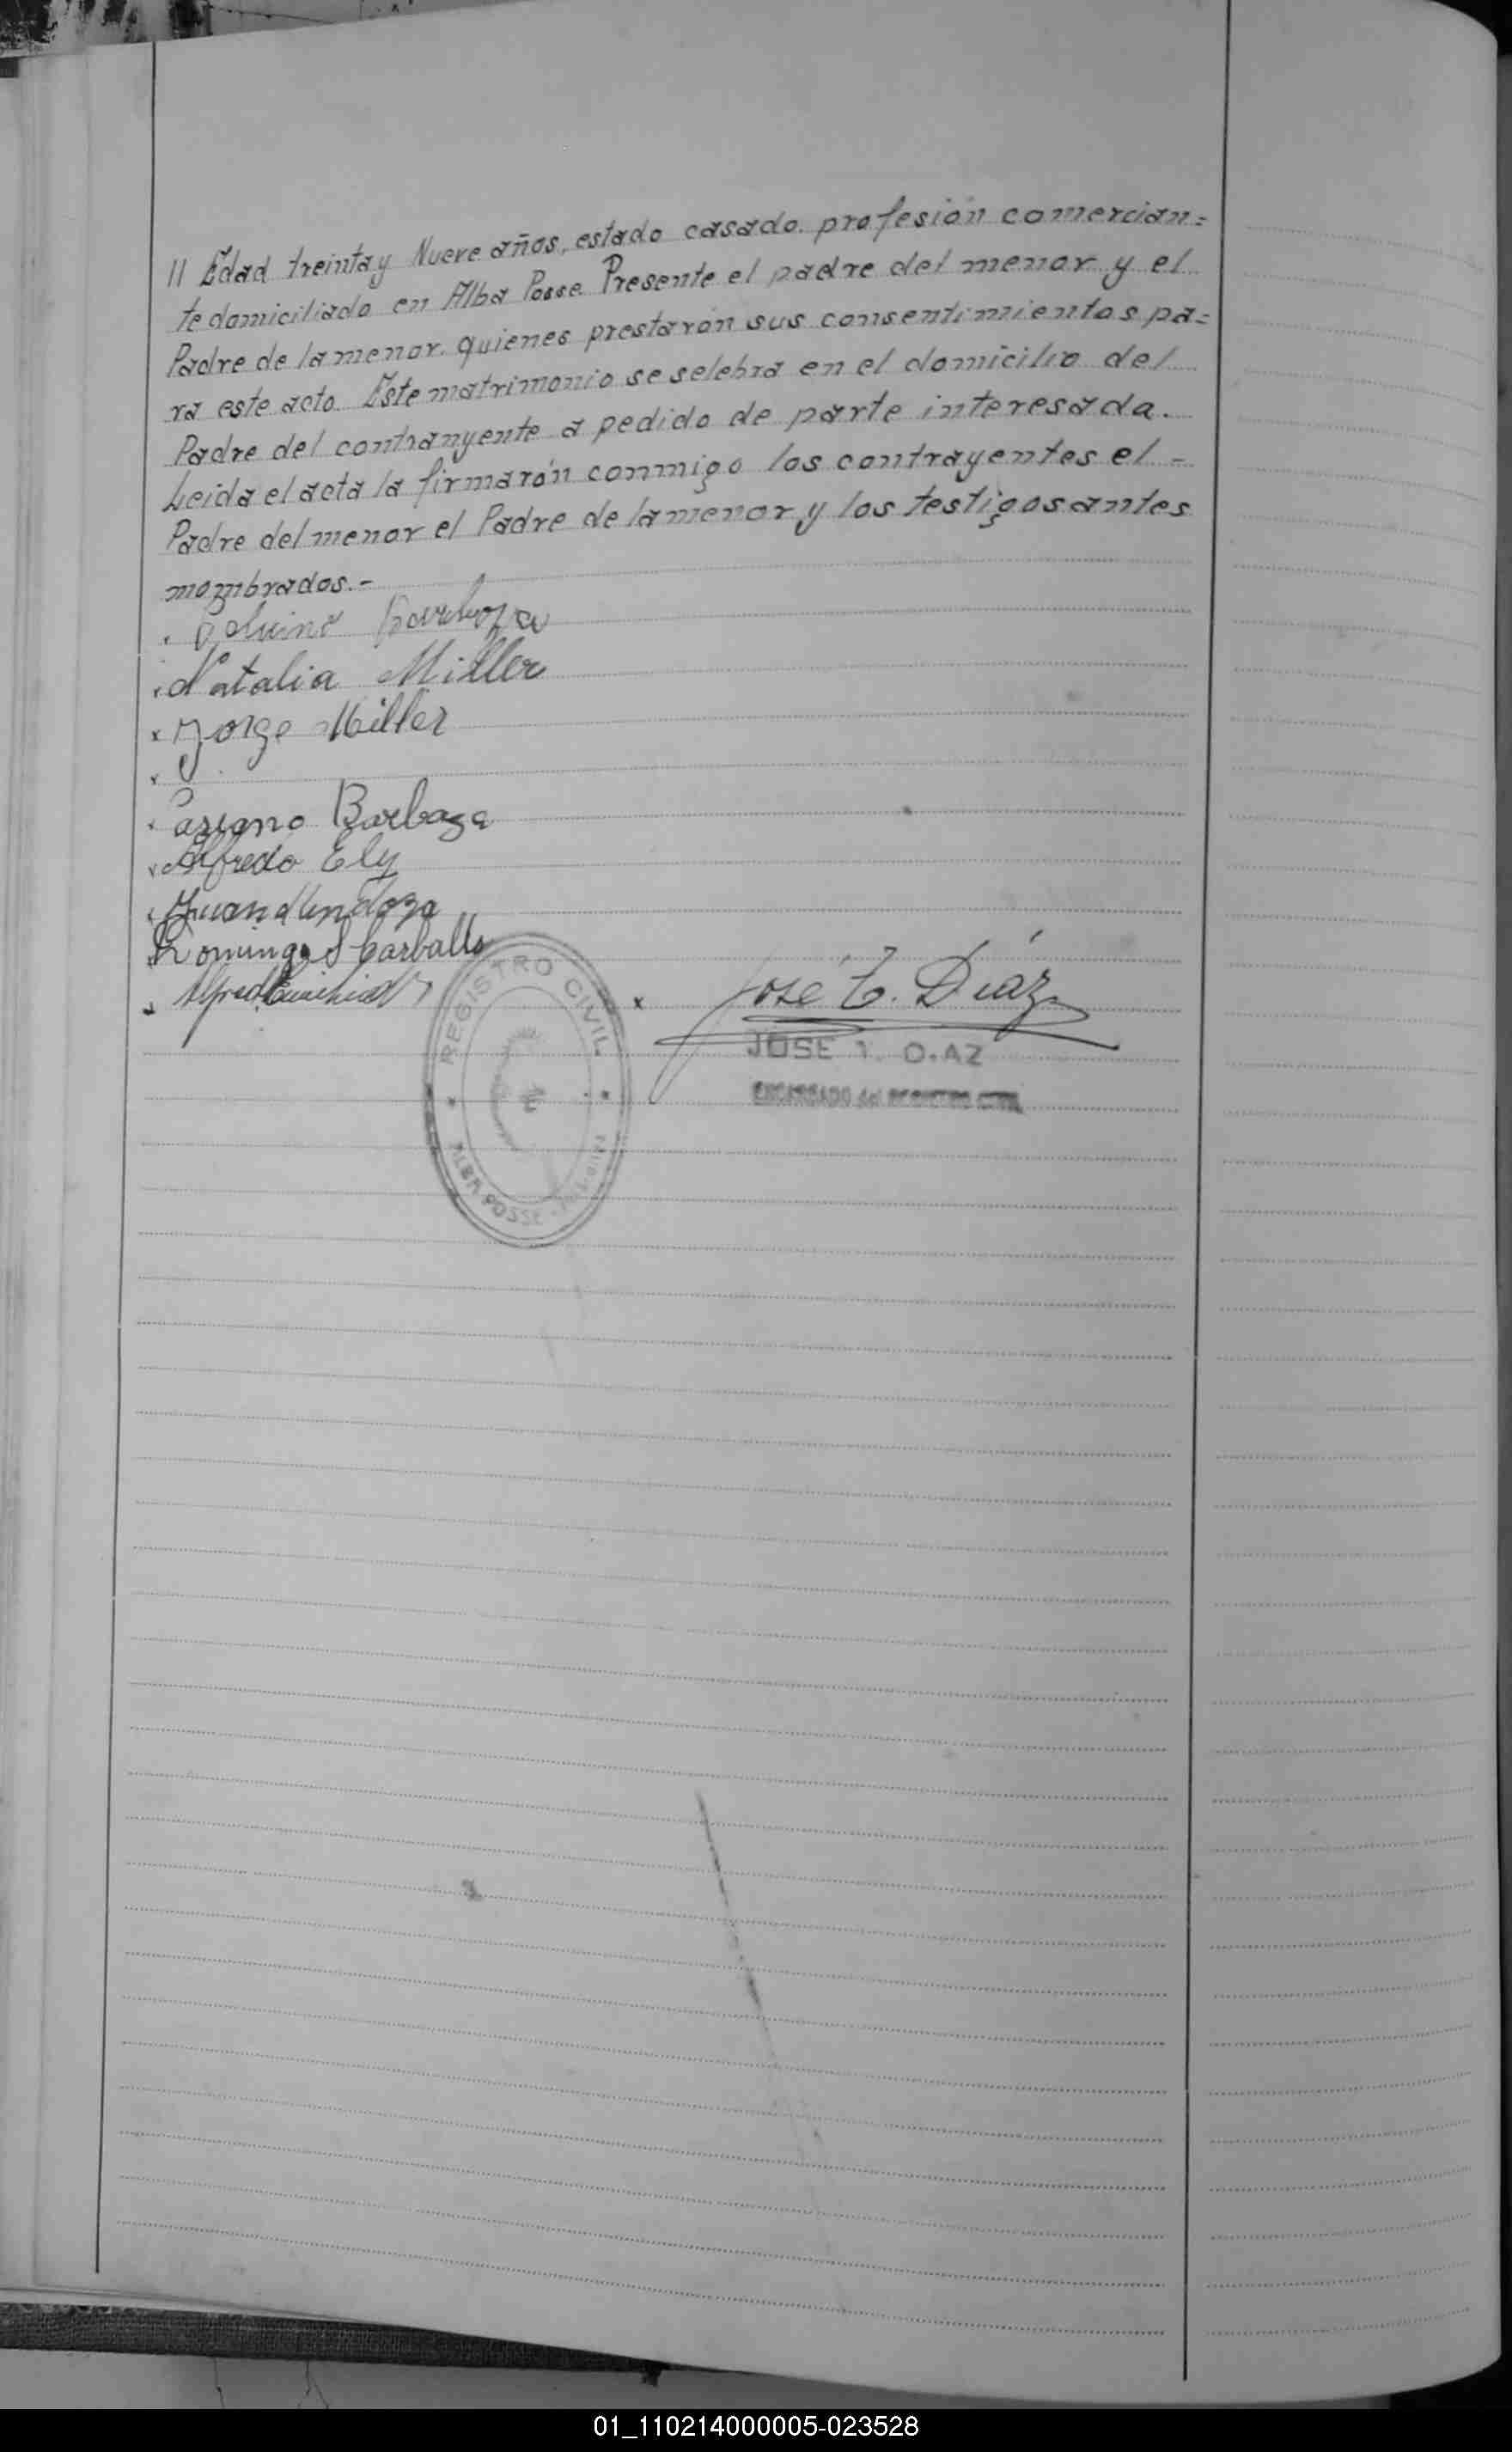 // Edad treinta y Nueve años, estado casado. profesión comercian=
te domiciliado en Alba Posse. Presente el padre del menor y el
Padre de la menor. quienes prestarón sus consentimientos pa=
ra este acto. Este matrimonio se selebra en el domicilio del
Padre del contranyente a pedido de parte interesada.
Leida el acta la firmarón conmigo los contrayentes el -
Padre del menor el Padre de la menor y los testigos antes
nombrados.-
Barboza
Natalia Miller
Jorge Miller
Casiano Barboza
Alfredo Ely
Juan Mendoza
Domingo S Carballo
Alfredo
José I. Díaz
JOSE I. DIAZ
ENCARGADO del REGISTRO CIVIL
REGISTRO CIVIL
ALBA POSSE
01_110214000005-023528